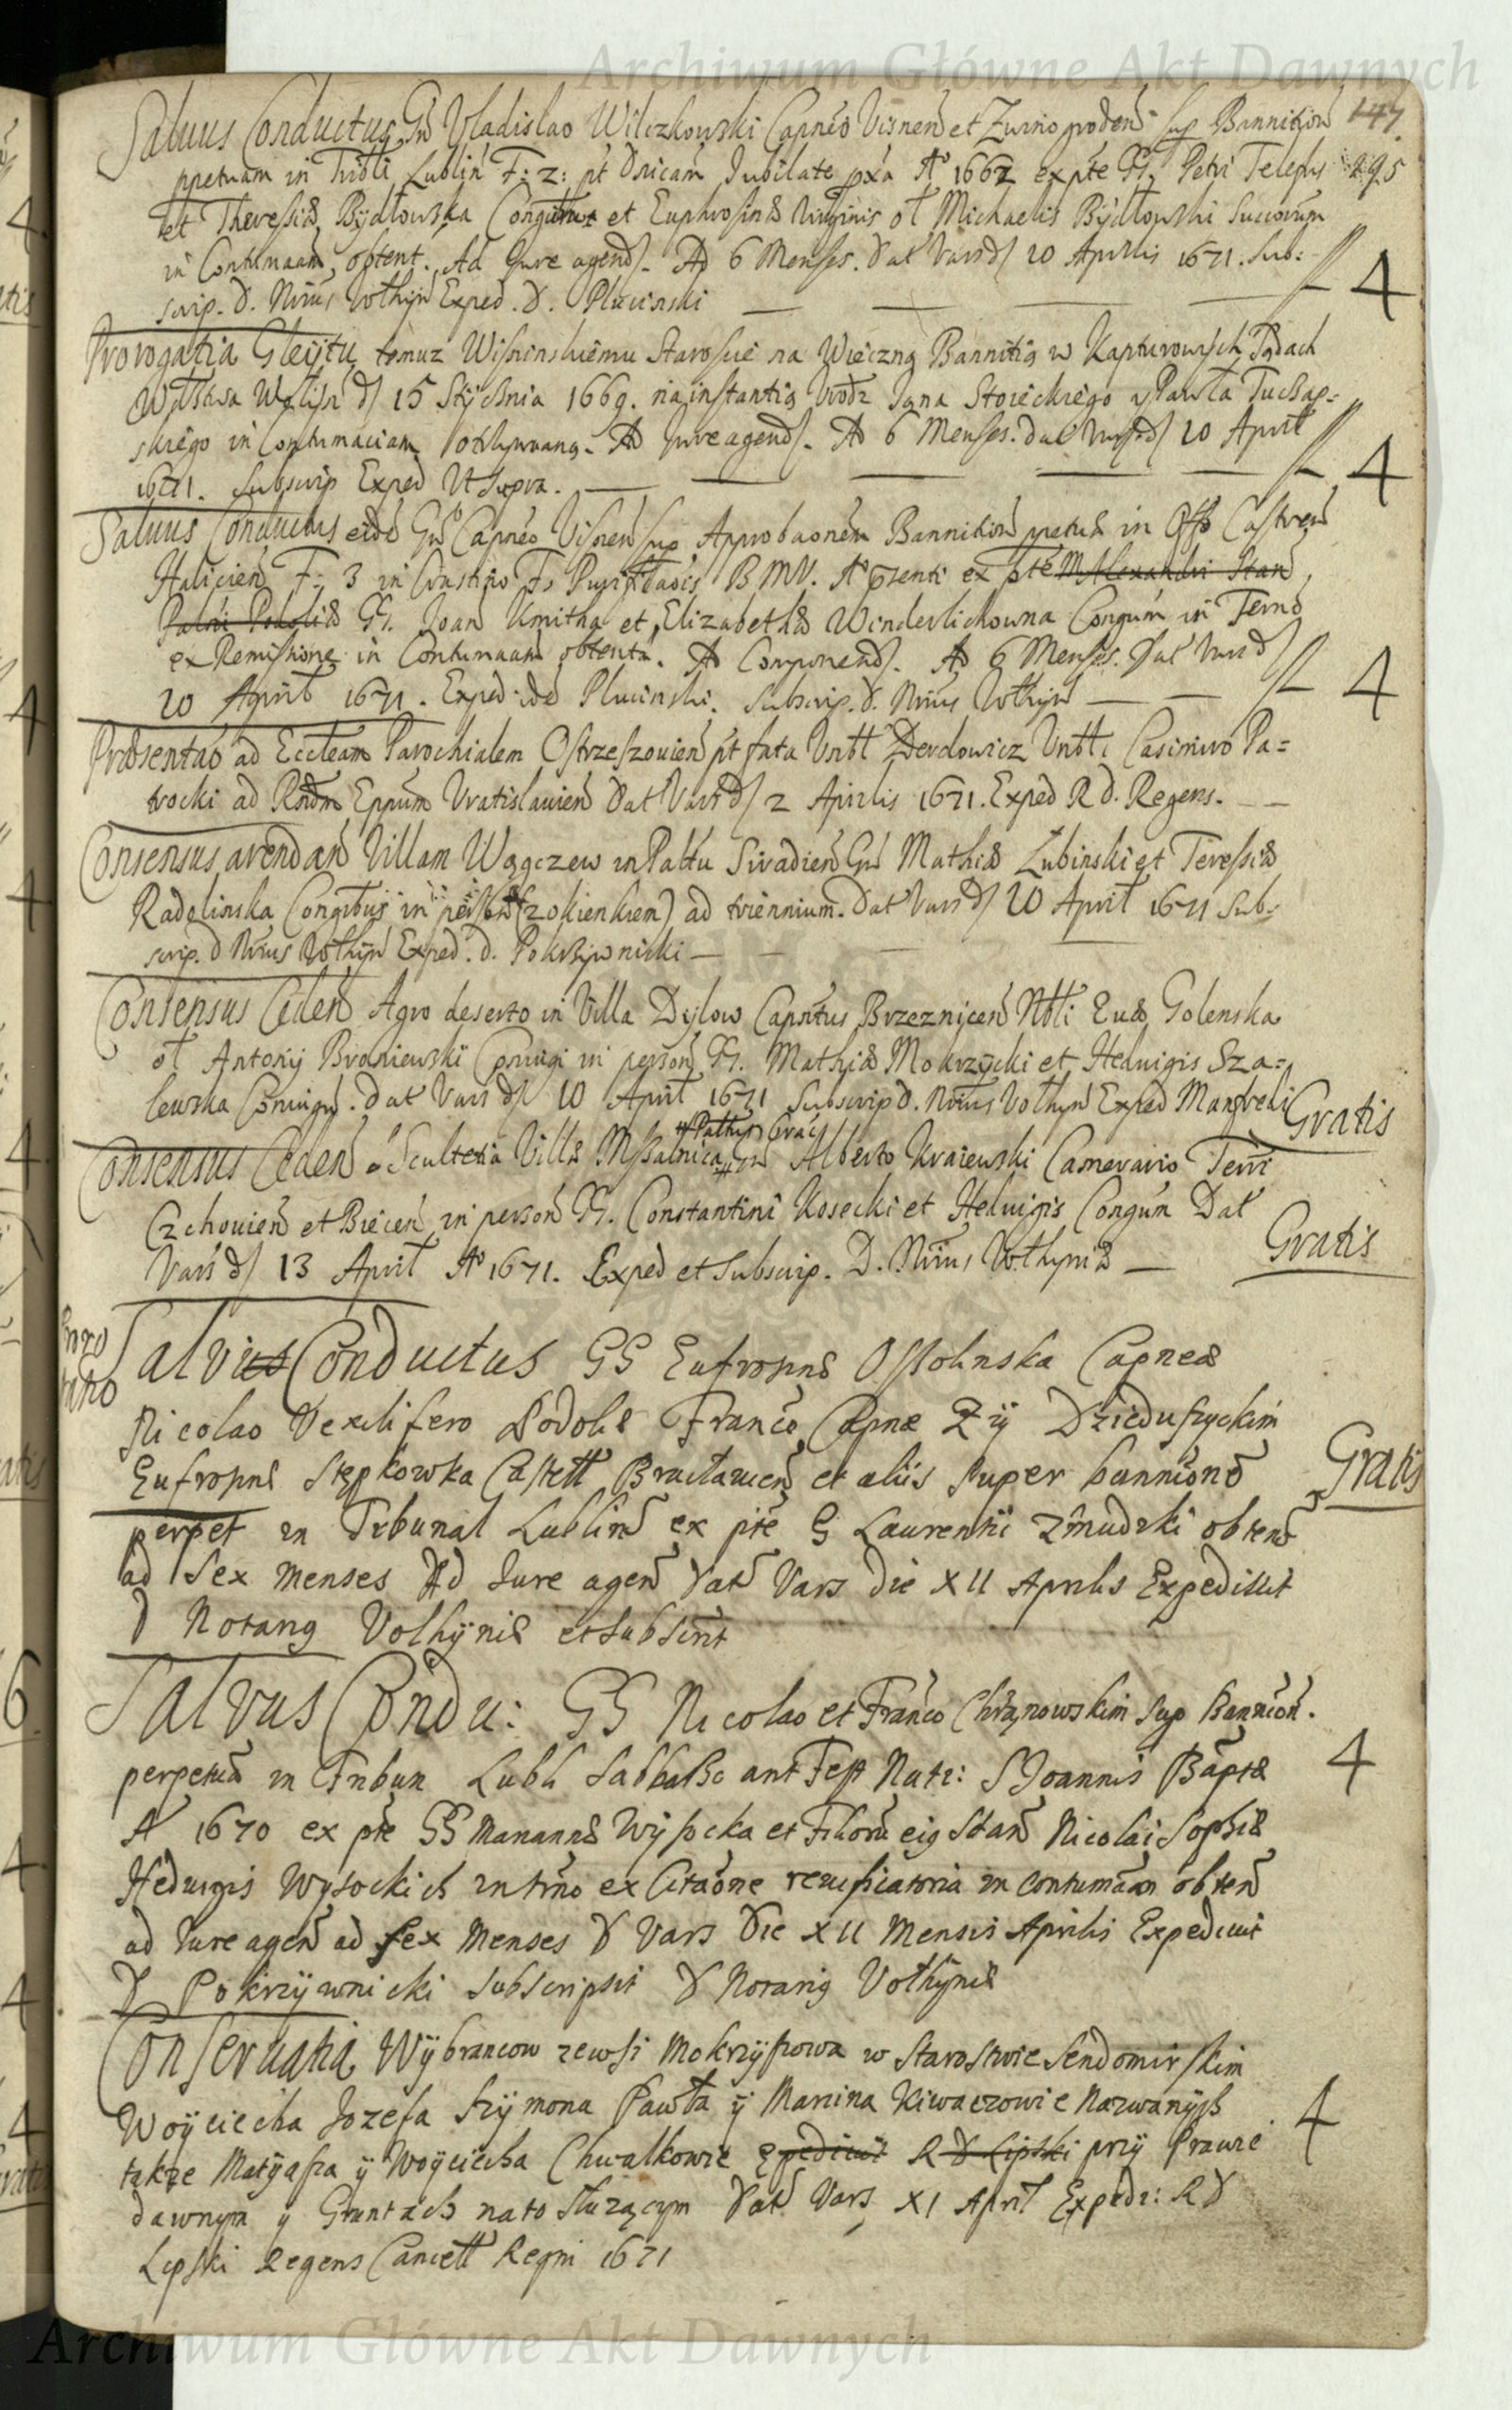 Archiwum Główne Akt Dawnych
147.
295
Salvus Conductus Gn Vladislao Wilczkowski Capneo Visnen et Zwinogroden sup Bannition
ppetuam in Tribli Lublin F: 2: pt Dnicam Jubilate pxa Aº 1662 exp̄te GG. Petri Telefus
et Theressiæ Bydłowska Conjugum et Euphrosinæ Virginis ol Michaelis Bydłowski Succorum
in Contumaam obtent. Ad Jure agend. Ad 6 Menses. Dat Vars d 20 Aprilis 1671. Sub:
scrip. D. Nrius Wolhyn Exped. D. Plucinski 4
Prorogatia Gleijtu temuz Wisninskiemu Staroscie na Wieczną Bannitią w Kapturowych Sądach
Wdztwa Wolhn d 15 Stycznia 1669. na instantią Urodz Jana Stoieckiego y Pawła Tuczap=
skiego in Contumaciam otrzymaną. Ad Jure agend. Ad 6 Menses. Dat Vars d 20 April
1671. Subscrip Exped Ut Supra. 4
Salvus Conductus eidē Gn Capneo Visnen sup Approbaonem Bannition ppetuæ in Offo Castren
Halicien F: 3 in Crastino Fs Purificaois BMV. Aº p̄senti ex p̄te M Alexandri Stan
Palni Podoliæ GG. Joan Kmitha et Elizabethæ Winderlichowna Congum in Termo
ex Remissione in Contumaam obtenta. Ad Componend. Ad 6 Menses. Dat Vars d
20 April 1671. Exped idē Plucinski. Subscrip. D. Nrius Wolhyn 4
Præsentao ad Eccleam Parochialem Ostrzeszovien pt fata Vnbl Derdowicz Vnbli Casimiro Pa=
trocki ad Rndm Eppum Vratislavien Dat Vars d 2 Aprilis 1671. Exped R D. Regens.
Consensus arendan Villam Wągczew in Paltu Siradien Gn Mathiæ Zubinski et Teressiæ
Radolinska Congibus in person (z okienkiem) ad triennium. Dat Vars d 20 April 1671 Sub:
scrip. D Nrius Wolhyn Exped. D. Pokrzywnicki
Consensus Ceden Agro deserto in Villa Dylow Capnatus Brzeznicen Nbli Euæ Golenska
ol Antonij Broniewski Conjugi in person GG. Mathiæ Mokrzycki et Hedvigis Sza=
lewska Conjugu. Dat Vars d 10 April 1671 Subscrip D. Nrius Volhyn Exped Manfreki Gratis
# Paltus Crac
Consensus Ceden Scultetia Villæ Mszalnica # Gn Alberto Kraiewski Camerario Terri
Czchovien et Biecen in person GG. Constantini Kosecki et Hedvigis Congum Dat
Vars d 13 April Aº 1671. Exped et Subscrip. D. Nrius Wolhyniæ Gratis
Salvus Conductus GG Eufrosinæ Ossolinska Capneæ
Nicolao Vexilifero Podoliæ Franco Capnæ Zij Dzieduszyckim
Eufrosinæ Stępkowka Castell Bracłavien et aliis super bannione Gratis
perpet in Tribunal Lublin ex pte G Laurentii Zmudzki obten
ad Sex Menses Ad Jure agen Dat Vars Die XII Aprilis Expedivit
D Notarig Volhyniæ et subscrit
Salvus Condu: GG Nicolao et Franco Chrząnowskim Sup Bannion.
perpetua in Tribun Lubli Sabbatho ant Fest Nati: S Joannis Baptæ 4
A 1670 ex pte GG Mariannæ Wysocka et Filioru eig Stan Nicolai Sophiæ
Hedvigis Wysockich in trno ex Citaone reussicatoria in contumaam obten
ad Jure agen ad Sex Menses D Vars Die XII Mensis Aprilis Expedivit
D Pokrzywnicki subscripsit D Notarig Volhyniæ
Conservatia Wybrancow zewsi Mokrzyszowa w Starostwie Sendomirskim
Woyciecha Jozefa Szymona Pawła y Marcina Kiwaczowie Nazwanych 4
także Matyasza y Woyciecha Chwałkowie Expedivit R D Lipski przy Prawie
dawnym y Gruntach na to Służącym Dat Vars XI April Exped: R D
Lipski Regens Cancell Regni 1671
Archiwum Główne Akt Dawnych